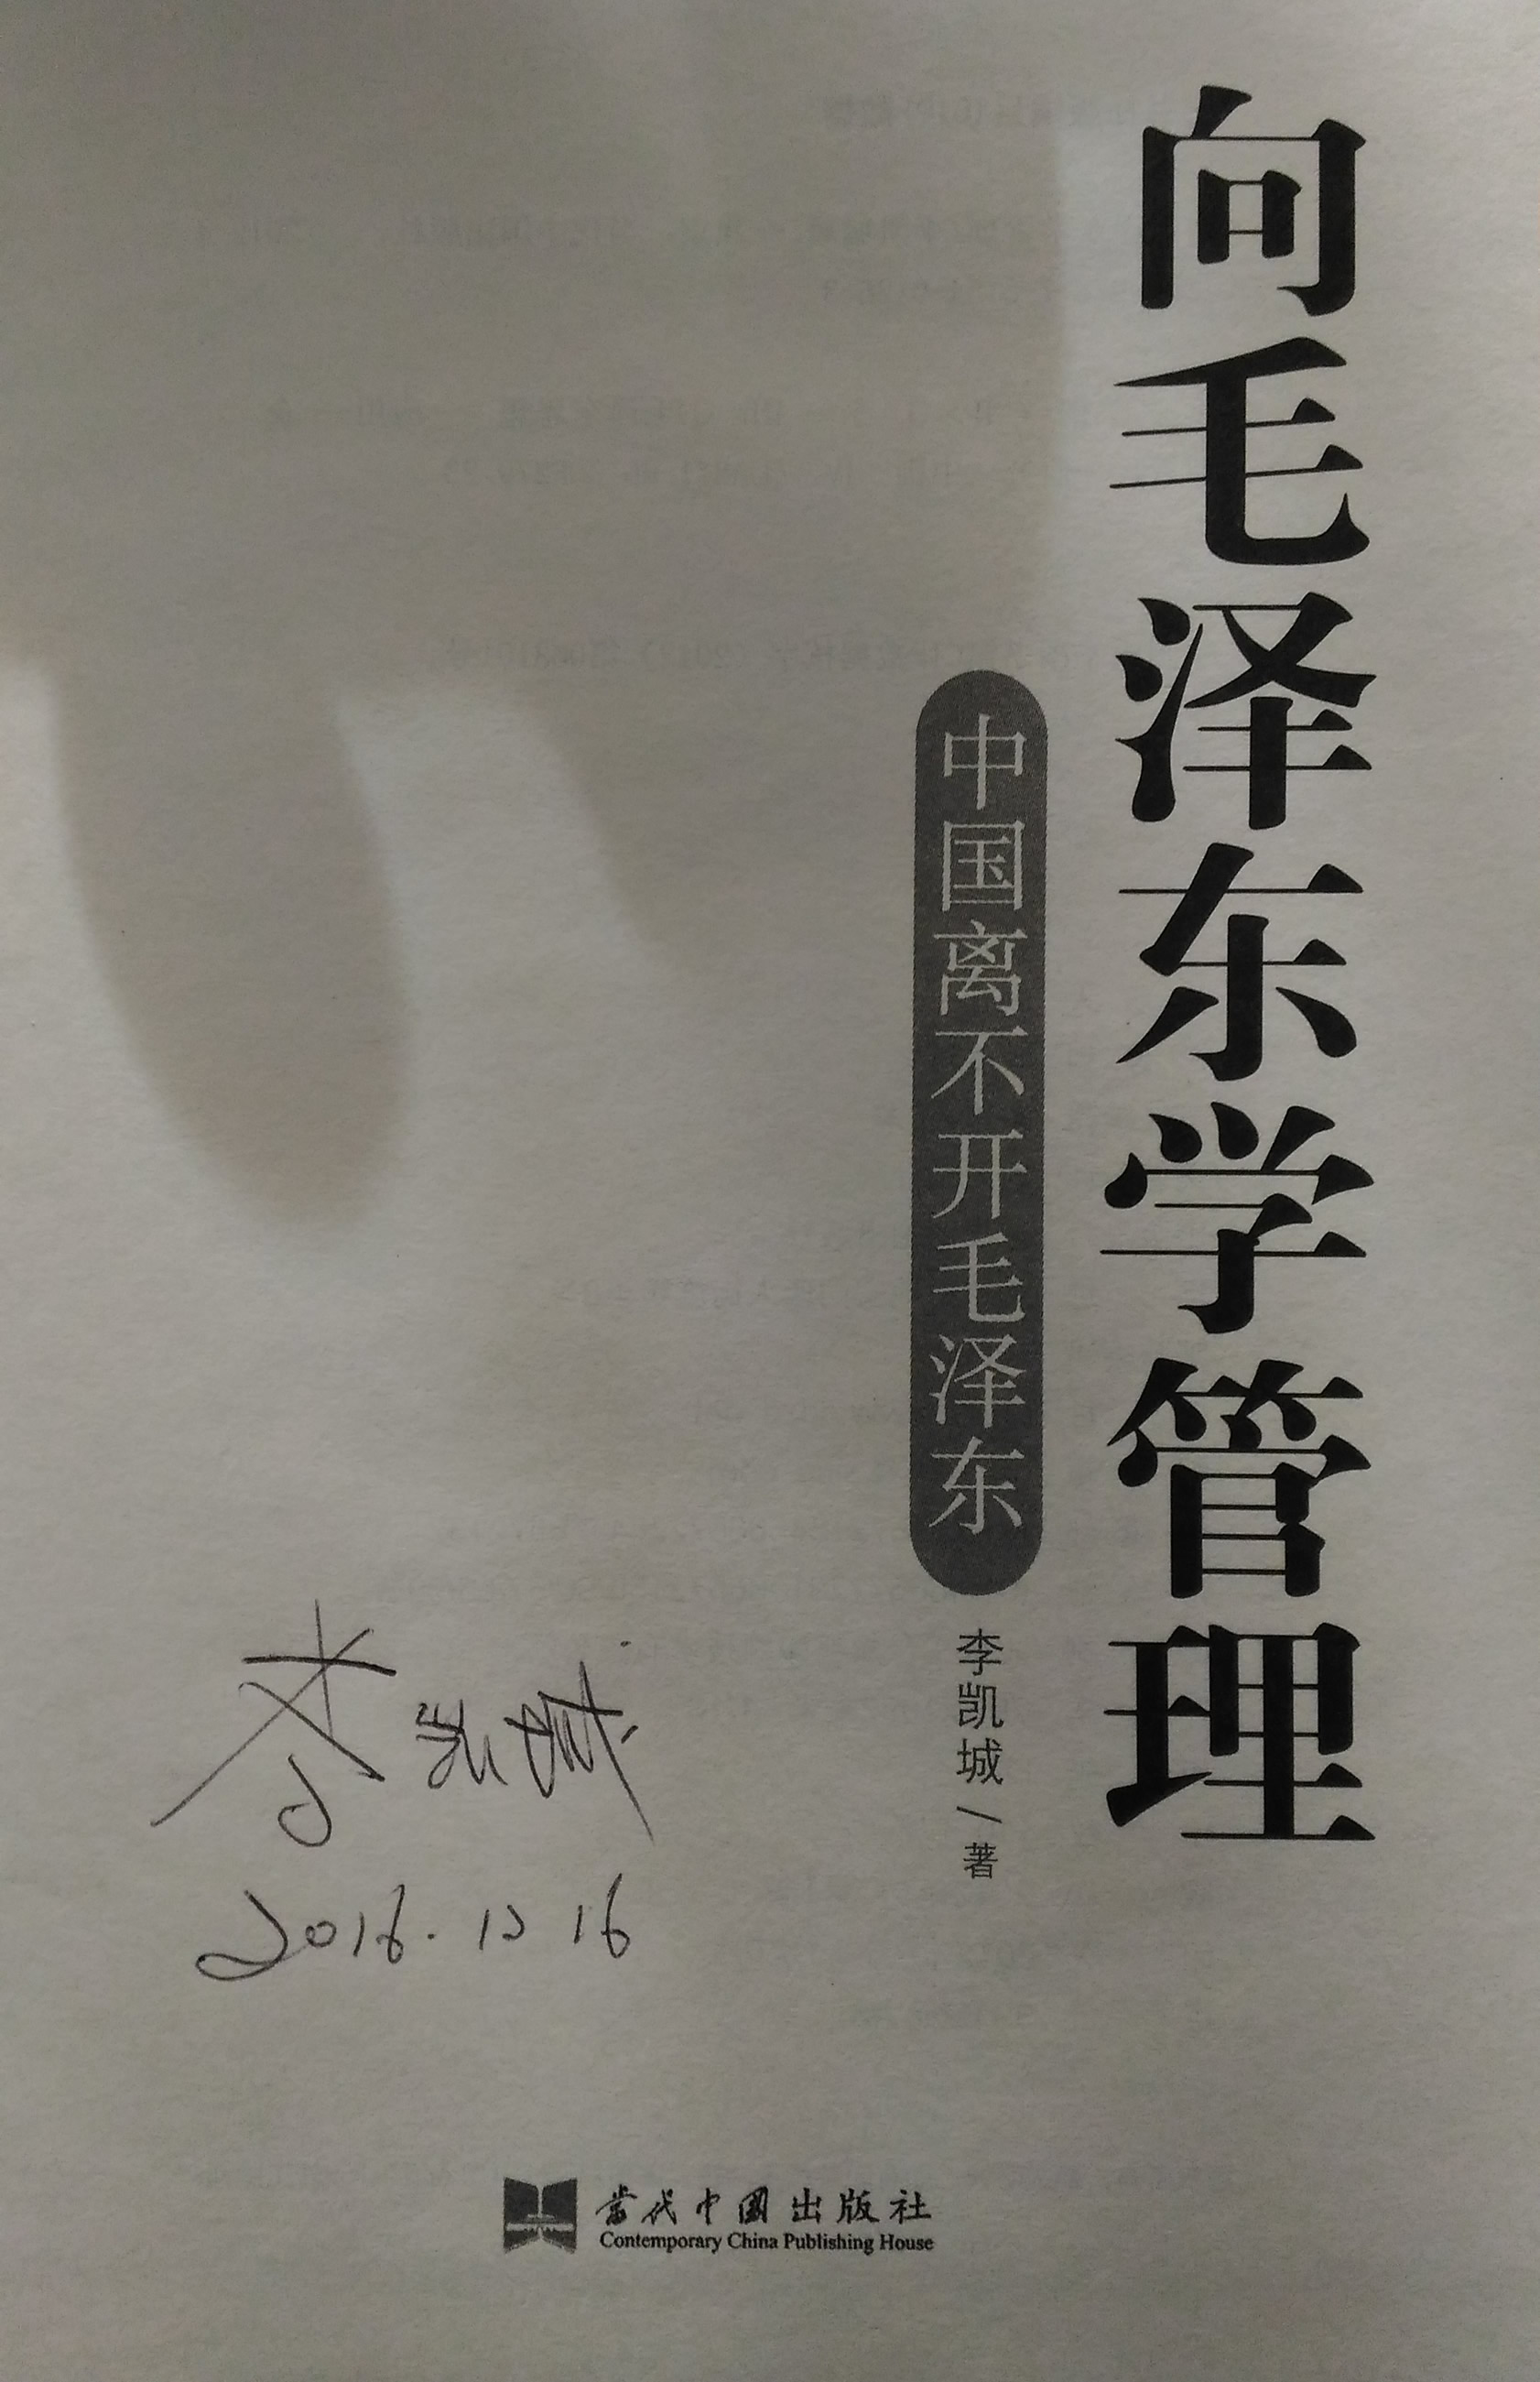 向毛泽东学管理
中国离不开毛泽东
李凯城/著
李凯城
2016.12 16
當代中國出版社
Contemporary China Publishing House